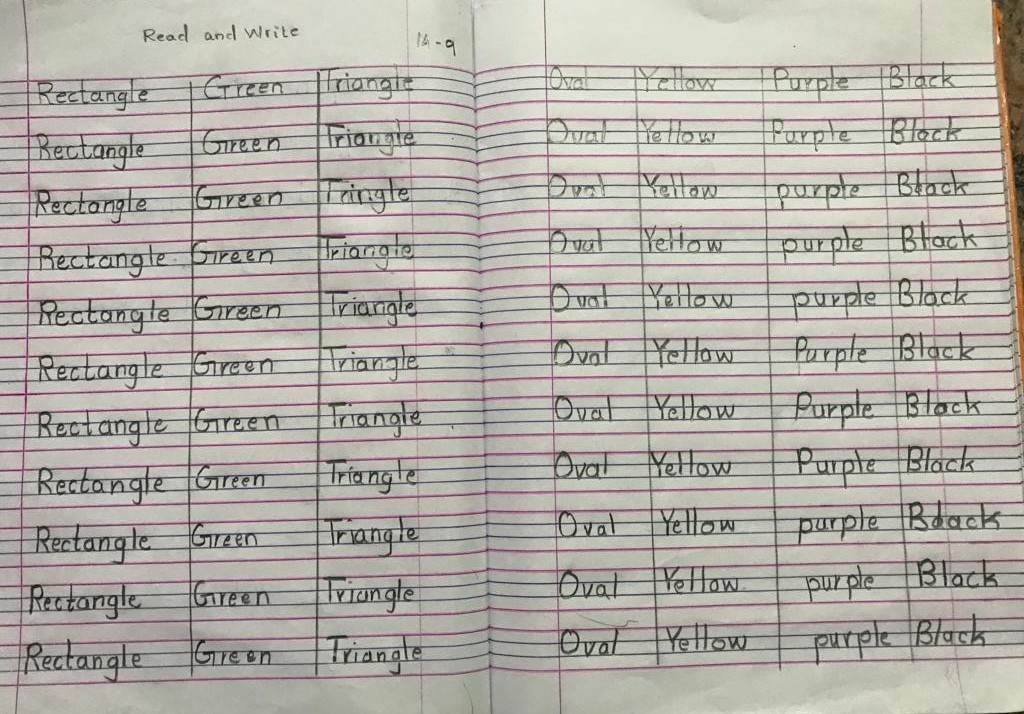 Read and Write
14-9
Rectangle Green Triangle Oval Yellow Purple Black
Rectangle Green Triangle Oval Yellow Purple Black
Rectangle Green Tringle Oval Yellow purple Black
Rectangle Green Triangle Oval Yellow purple Black
Rectangle Green Triangle Oval Yellow purple Black
Rectangle Green Triangle Oval Yellow Purple Black
Rectangle Green Triangle Oval Yellow Purple Black
Rectangle Green Triangle Oval Yellow Purple Black
Rectangle Green Triangle Oval Yellow purple Black
Rectangle Green Triangle Oval Yellow purple Black
Rectangle Green Triangle Oval Yellow purple Black